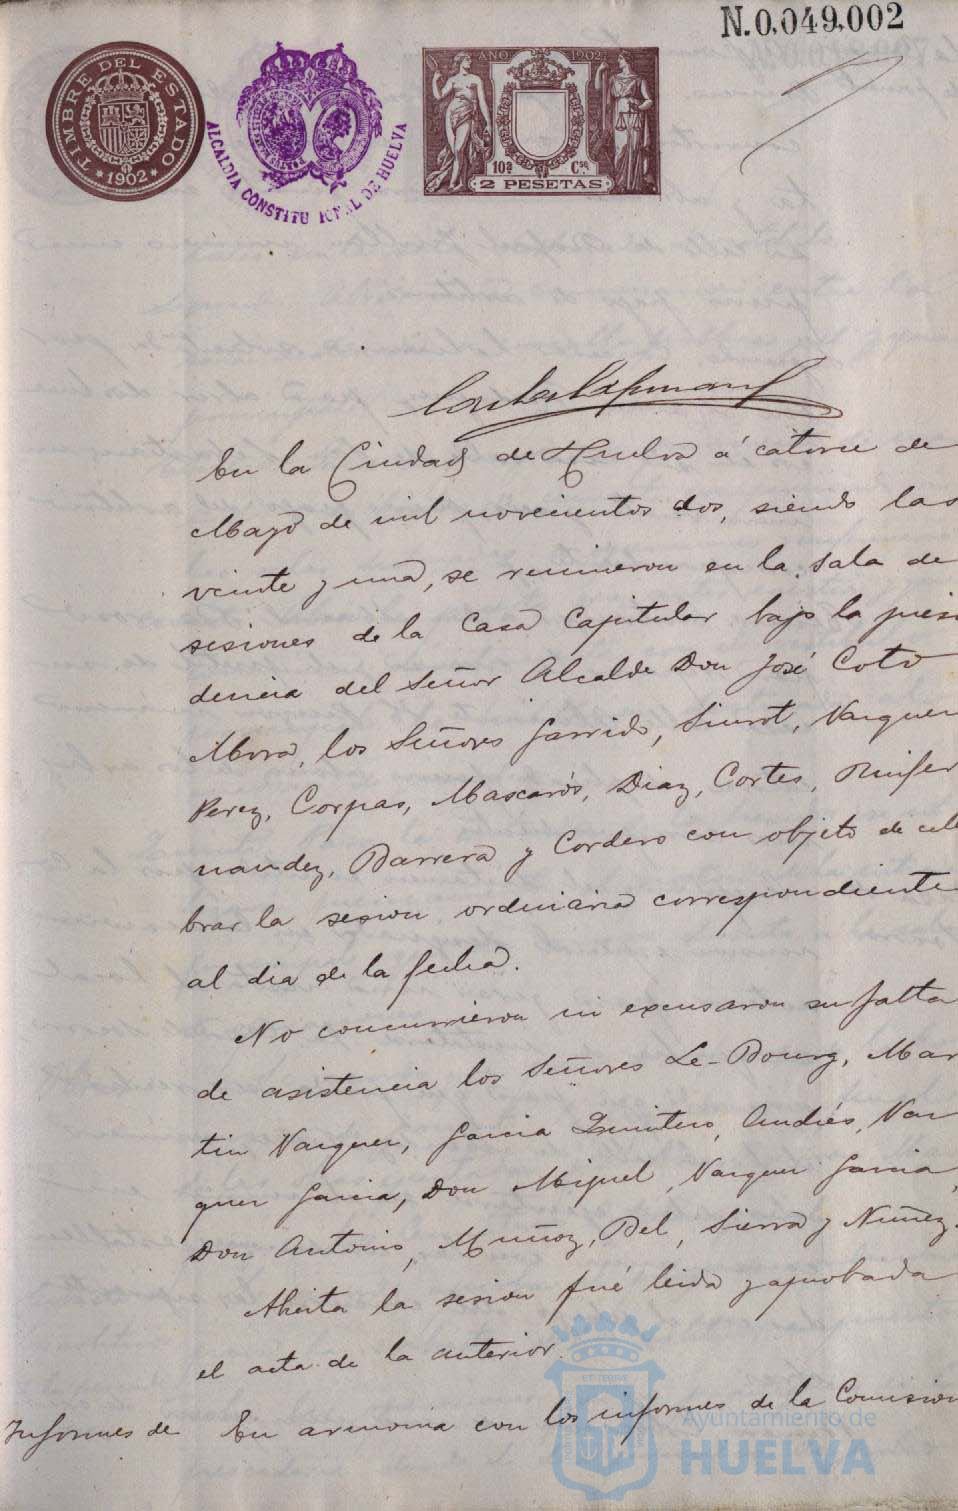 N.0,049,002
TIMBRE DEL ESTADO
1902
ALCALDIA CONSTITUCIONAL DE HUELVA
AÑO 1902
10ª Cse
2 PESETAS
En la Ciudad de Huelva á catorce de
Mayo de mil novecientos dos, siendo las
veinte y una, se reunieron en la Sala de
sesiones de la Casa Capitular bajo la presi
dencia del Señor Alcalde Don José Coto
Mora, los Señores Garrido, Siurot, Vazquez
Perez, Corpas, Mascarós, Diaz, Cortes, Ruifer
nandez, Barrera y Cordero con objeto de cele
brar la sesion ordinaria correspondiente
al dia de la fecha.
No concurrieron ni excusaron su falta
de asistencia los Señores Le-Bourg, Mar
tin Vazquez, Garcia Quintero, Andrés, Vaz
quez Garcia, Don Miguel, Vazquez Garcia,
Don Antonio, Muñoz, Bel, Sierra y Nuñez.
Abierta la sesion fué leida y aprobada
el acta de la anterior.
Informes de
En armonia con los informes de la Comision
Ayuntamiento de
HUELVA